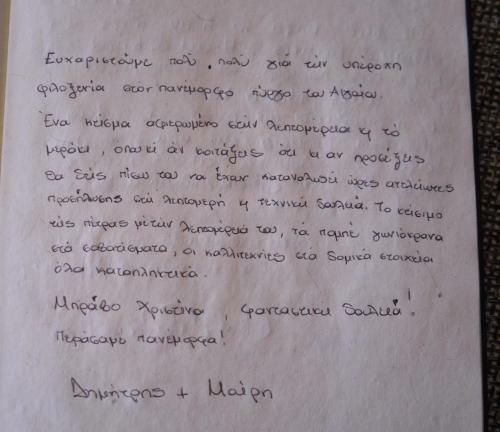 Ευχαριστούμε πολύ, πολύ γιά τήν υπέροχη
φιλοξενία στον πανέμορφο πύργο του Αιγαίου.
Ένα κτίσμα αφιερωμένο στήν λεπτομέρεια κ το
μεράκι, όπου κι άν κοιτάξεις ότι κι αν προσέξεις
θα δεις πίσω του να έχουν καταναλωθεί ώρες ατελείωτες
προσήλωσης στή λεπτομερή κ τεχνική δουλειά. Το κτίσιμο
τής πέτρας μέ τήν λεπτομέρειά του, τά γωνιόκρανα
στά σοβατίσματα, οι καλλιτεχνίες στά δομικά στοιχεία
όλα καταπληκτικά.
Μπράβο Χριστίνα, φανταστική δουλειά!
Περάσαμε πανέμορφα!
Δημήτρης + Μαίρη